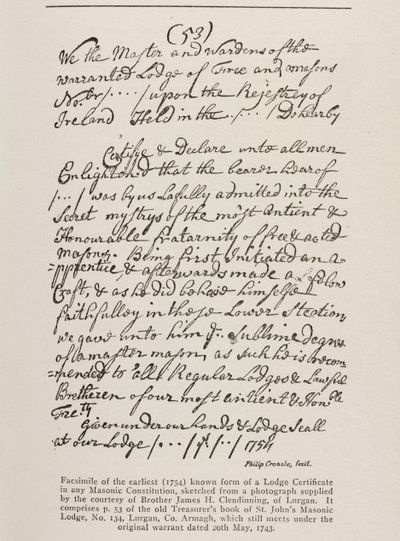 (53)
We the Master and Wardens of the
warranted Lodge of Free and masons
No.br /..../ upon the Rejestrey of
Ireland Held in the /.../ Do hearby
Certifye & Declare unto all men
Enlightoned that the bearer hear of
/.../ was by us Lafully admitted into the
Secret mystrys of the most Antient &
Honourable fratarnity of free & acted
Masons. Being first Initiated an a
=pprentice, & afterwards made a Fellow
Craft, & as he did behave himself
faithfulley in these Lower Stections
we gave unto him ye. Sublime degree
of a master mason, as such he is recom
=mended to all Regular Lodges & Lawfull
Bretheren of our most aintient & Honble
Fre:ty
Given under our hands & Lodge Seall
at our Lodge /.../ ye /../ 1754
Philip Crossle, fecit.
Facsimile of the earliest (1754) known form of a Lodge Certificate
in any Masonic Constitution, sketched from a photograph supplied
by the courtesy of Brother James H. Clendinning, of Lurgan. It
comprises p. 53 of the old Treasurer's book of St. John's Masonic
Lodge, No. 134, Lurgan, Co. Armagh, which still meets under the
original warrant dated 20th May, 1743.